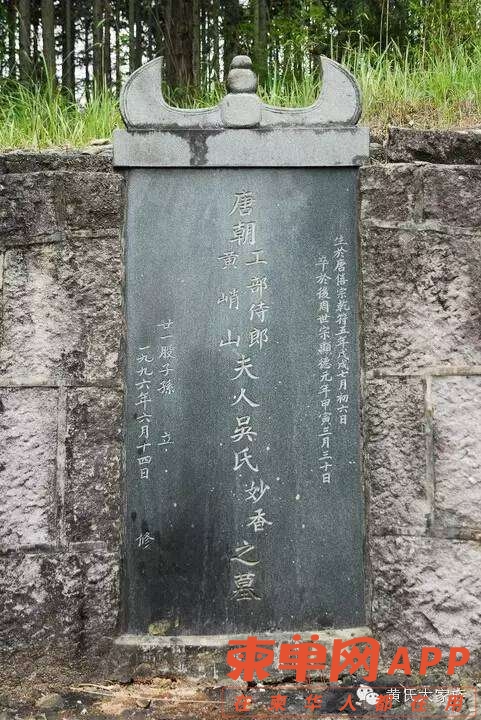 生於唐僖宗乾符五年戊戌七月初六日
卒於後周世宗顯德元年甲寅三月三十日
唐朝工部侍郎
黃峭山夫人吳氏妙香之墓
廿一股子孫 立
一九九六年六月十四日 修
柬单网APP
黄氏大家族